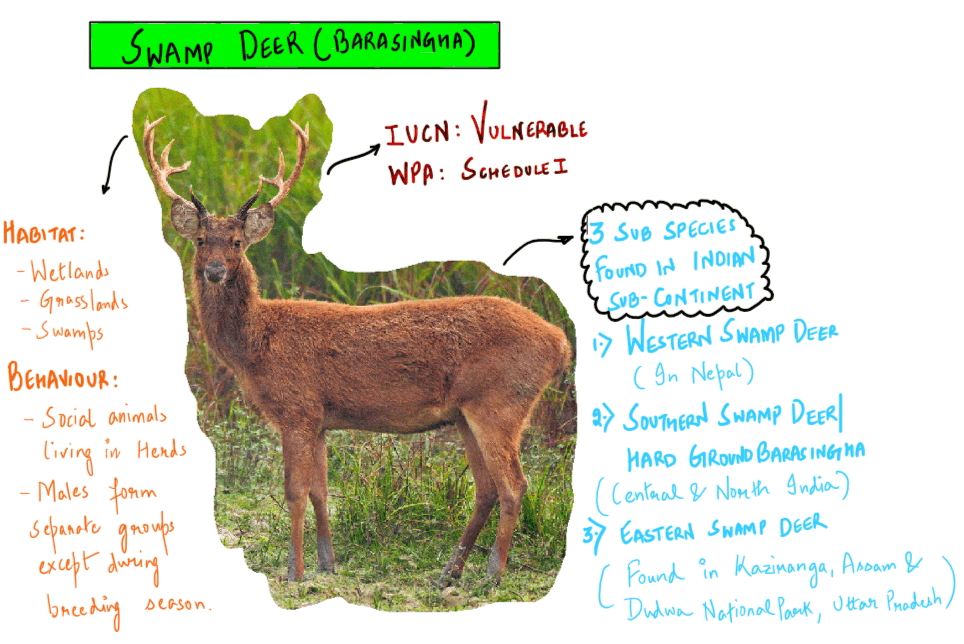 SWAMP DEER (BARASINGHA)
IUCN: VULNERABLE
WPA: SCHEDULE I
HABITAT:
- Wetlands
- Grasslands
- Swamps
BEHAVIOUR:
- Social animals
living in Herds
- Males form
separate groups
except during
breeding season.
3 SUB SPECIES
FOUND IN INDIAN
SUB-CONTINENT
1.) WESTERN SWAMP DEER
(In Nepal)
2.) SOUTHERN SWAMP DEER/
HARD GROUND BARASINGHA
(Central & North India)
3.) EASTERN SWAMP DEER
(Found in Kaziranga, Assam &
Dudwa National Park, Uttar Pradesh)